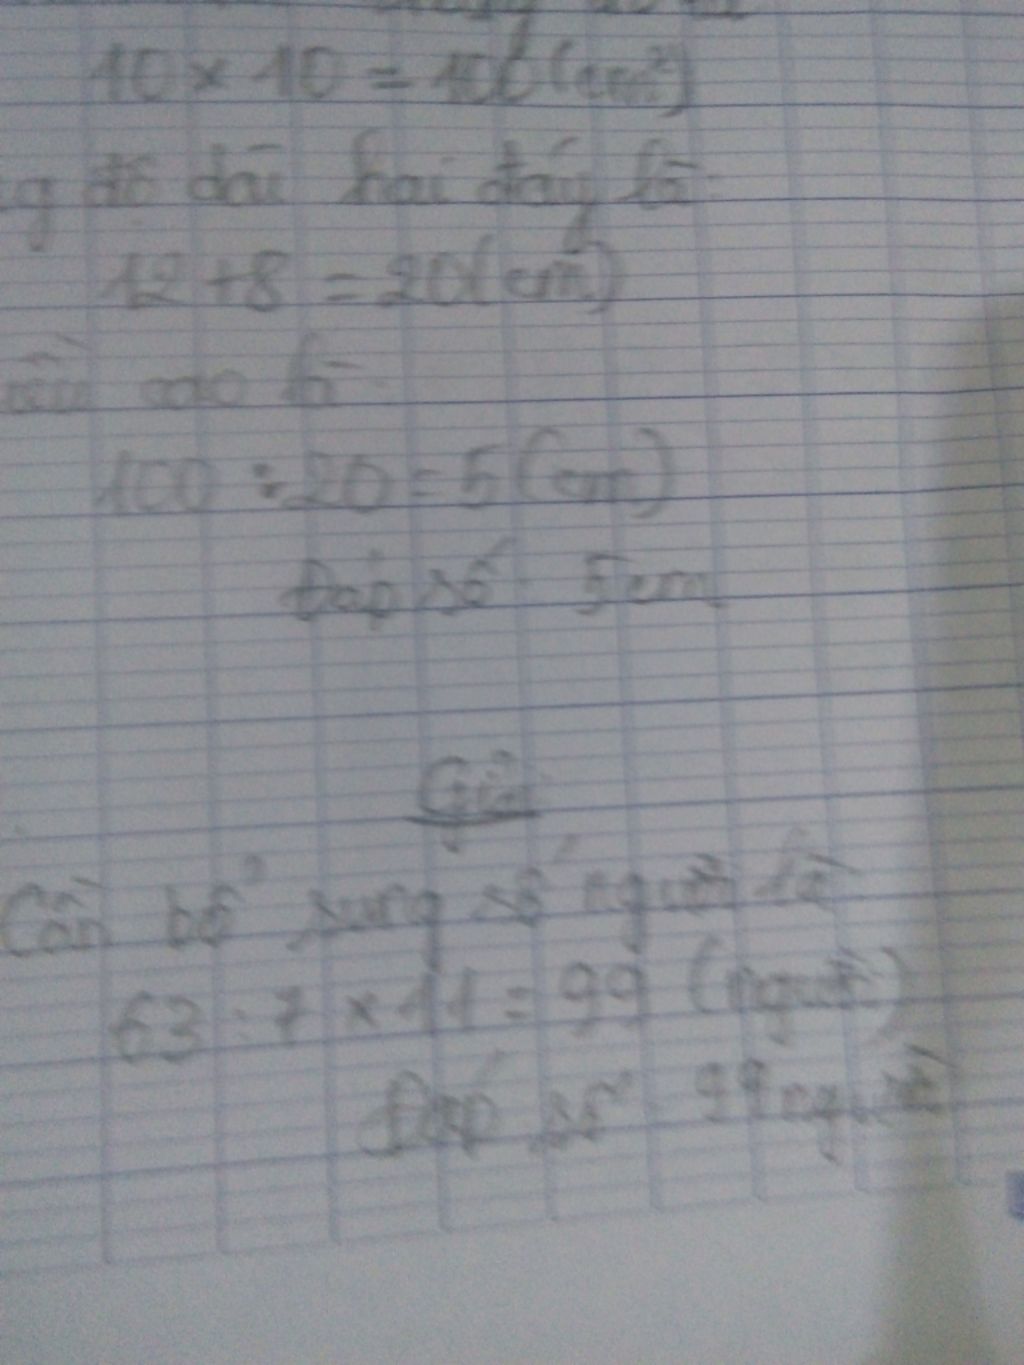 10 × 10 = 100 (cm²)
độ dài hai đáy là:
12 + 8 = 20 (cm)
cao là:
100 : 20 = 5 (cm)
Đáp số: 5 cm
Giải
Cần bổ sung số người là
63 : 7 × 11 = 99 (người)
Đáp số: 99 người